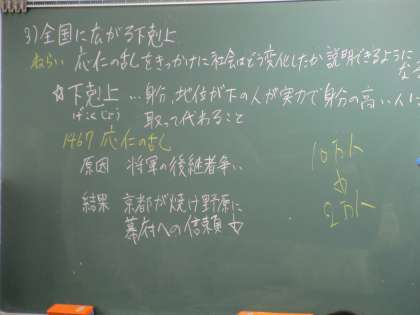 3) 全国に広がる下剋上
ねらい 応仁の乱をきっかけに社会はどう変化したか説明できるように
☆下剋上 …身分、地位が下の人が実力で身分の高い人に
取って代わること
1467 応仁の乱
原因 将軍の後継者争い
結果 京都が焼け野原に
幕府への信頼↓
10万人
↓
2万人